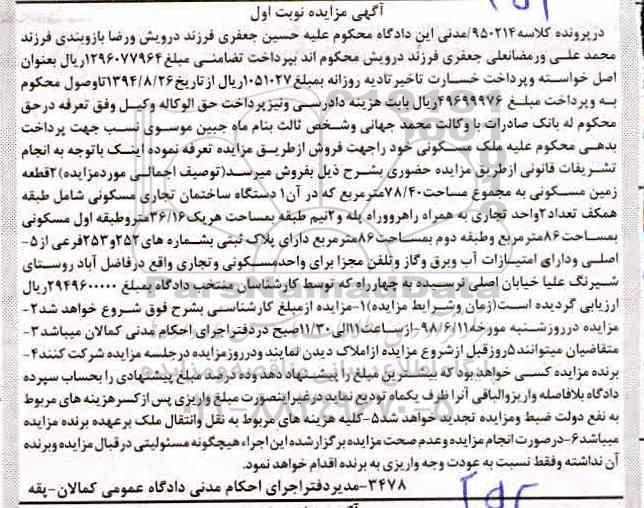 آگهی مزایده نوبت اول
درپرونده کلاسه ۹۵۰۲۱۴/مدنی این دادگاه محکوم علیه حسین جعفری فرزند درویش ورضا بازوبندی فرزند
محمد علی ورمضانعلی جعفری فرزند درویش محکوم اند بپرداخت تضامنی مبلغ ۱۲۹۶۰۷۷۹۶۴ریال بعنوان
اصل خواسته وپرداخت خسارت تاخیرتادیه روزانه بمبلغ ۱۰۵۱۰۲۷ریال ازتاریخ ۱۳۹۴/۸/۲۶تاوصول محکوم
به وپرداخت مبلغ ۴۹۶۹۹۹۷۶ریال بابت هزینه دادرسی ونیزپرداخت حق الوکاله وکیل وفق تعرفه درحق
محکوم له بانک صادرات با وکالت محمد جهانی وشخص ثالث بنام ماه جبین موسوی نسب جهت پرداخت
بدهی محکوم علیه ملک مسکونی خود راجهت فروش ازطریق مزایده تعرفه نموده اینک باتوجه به انجام
تشریفات قانونی ازطریق مزایده حضوری بشرح ذیل بفروش میرسد(توصیف اجمالی موردمزایده)۲قطعه
زمین مسکونی به مجموع مساحت۷۸/۴۰مترمربع که در آن۱ دستگاه ساختمان تجاری مسکونی شامل طبقه
همکف تعداد۲واحد تجاری به همراه راهرووراه پله و۲نیم طبقه بمساحت هریک۳۶/۱۶متروطبقه اول مسکونی
بمساحت۸۶مترمربع وطبقه دوم بمساحت۸۶مترمربع دارای پلاک ثبتی بشماره های۲۵۲و۲۵۳فرعی از۵-
اصلی ودارای امتیازات آب وبرق وگاز وتلفن مجزا برای واحدمسکونی وتجاری واقع درفاضل آباد روستای
شیرنگ علیا خیابان اصلی نرسیده به چهارراه که توسط کارشناسان منتخب دادگاه بمبلغ ۲۹۴۹۶۰۰۰۰۰ریال
ارزیابی گردیده است(زمان وشرایط مزایده)۱-مزایده ازمبلغ کارشناسی بشرح فوق شروع خواهد شد۲-
مزایده درروزشنبه مورخه۹۸/۶/۱۱-ازساعت۱۱الی۱۱/۳۰صبح دردفتراجرای احکام مدنی کمالان میباشد۳-
متقاضیان میتوانند۵روزقبل ازشروع مزایده ازاملاک دیدن نمایند ودرروزمزایده درجلسه مزایده شرکت کنند۴-
برنده مزایده کسی خواهدبود که بیشترین مبلغ را پیشنهاد دهد وده درصد مبلغ پیشنهادی را بحساب سپرده
دادگاه بلافاصله واریزوالباقی آنرا ظرف یکماه تودیع نماید درغیراینصورت مبلغ واریزی پس ازکسرهزینه های مربوط
به نفع دولت ضبط ومزایده تجدید خواهد شد۵-کلیه هزینه های مربوط به نقل وانتقال ملک برعهده برنده مزایده
میباشد۶-درصورت انجام مزایده وعدم صحت مزایده برگزارشده این اجراء هیچگونه مسئولیتی درقبال مزایده وبرنده
آن نداشته وفقط نسبت به عودت وجه واریزی به برنده اقدام خواهد نمود.
۳۴۷۸-مدیردفتراجرای احکام مدنی دادگاه عمومی کمالان-پقه